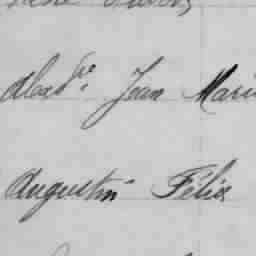 Alexdre Jean Marie
Augustin Félix